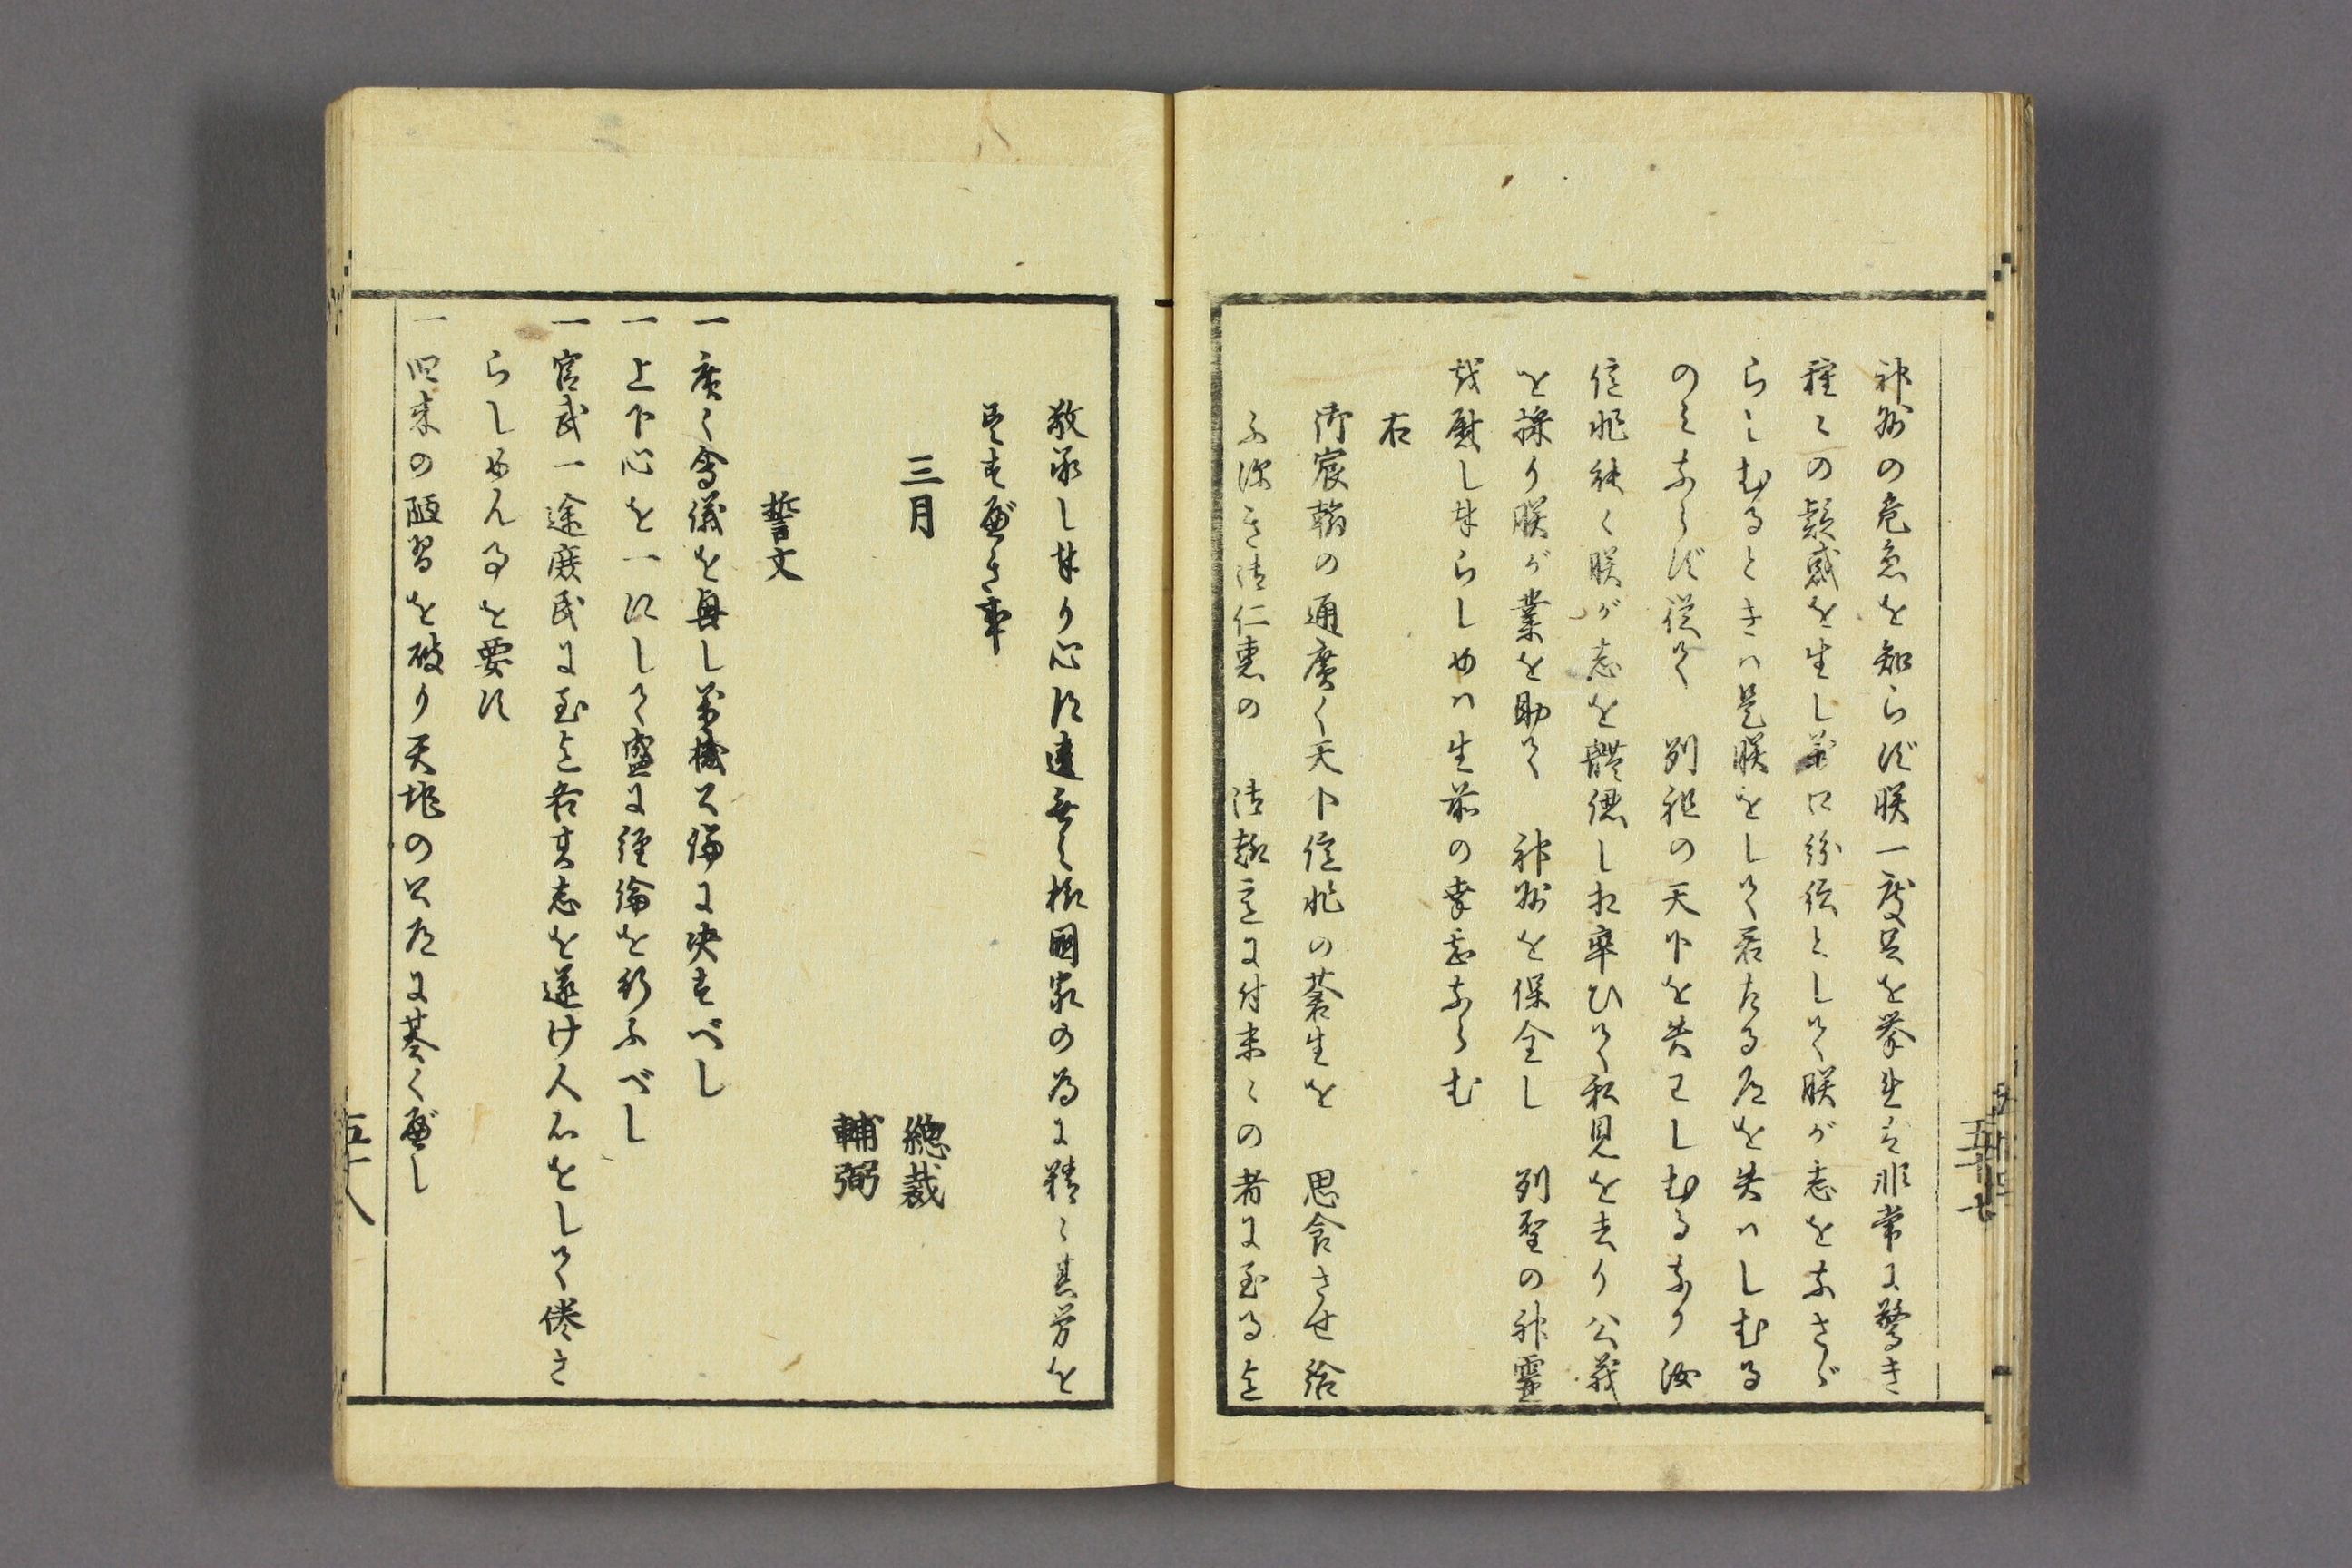 神州の危急を知らず朕一度足を挙れば非常に驚き
種々の疑惑を生し万口紛紜として朕が志をなさゞ
らしむるときハ是朕をして君たる道を失ハしむる
のみならず従て　列祖の天下を失はしむるなり汝
億兆能々朕が志を體認し相率ひて私見を去り公義
を採り朕が業を助て　神州を保全し　列聖の神靈
を慰し奉らしめハ生前の幸甚ならむ
右
御宸翰の通廣く天下億兆の蒼生を　思食させ給
ふ深き御仁恵の　御趣意に付末々の者に至る迄
敬承し奉り心得違無く様國家の為に精々其労を
尽すべき事
三月
總裁
輔弼
誓文
一 廣く會議を興し万機公論に决すべし
一 上下心を一にして盛に經綸を行ふべし
一 官武一途庶民に至迄各其志を遂け人心をして倦さ
らしめん事を要す
一 旧来の陋習を破り天地の公道に基くべし
五十七
五十八